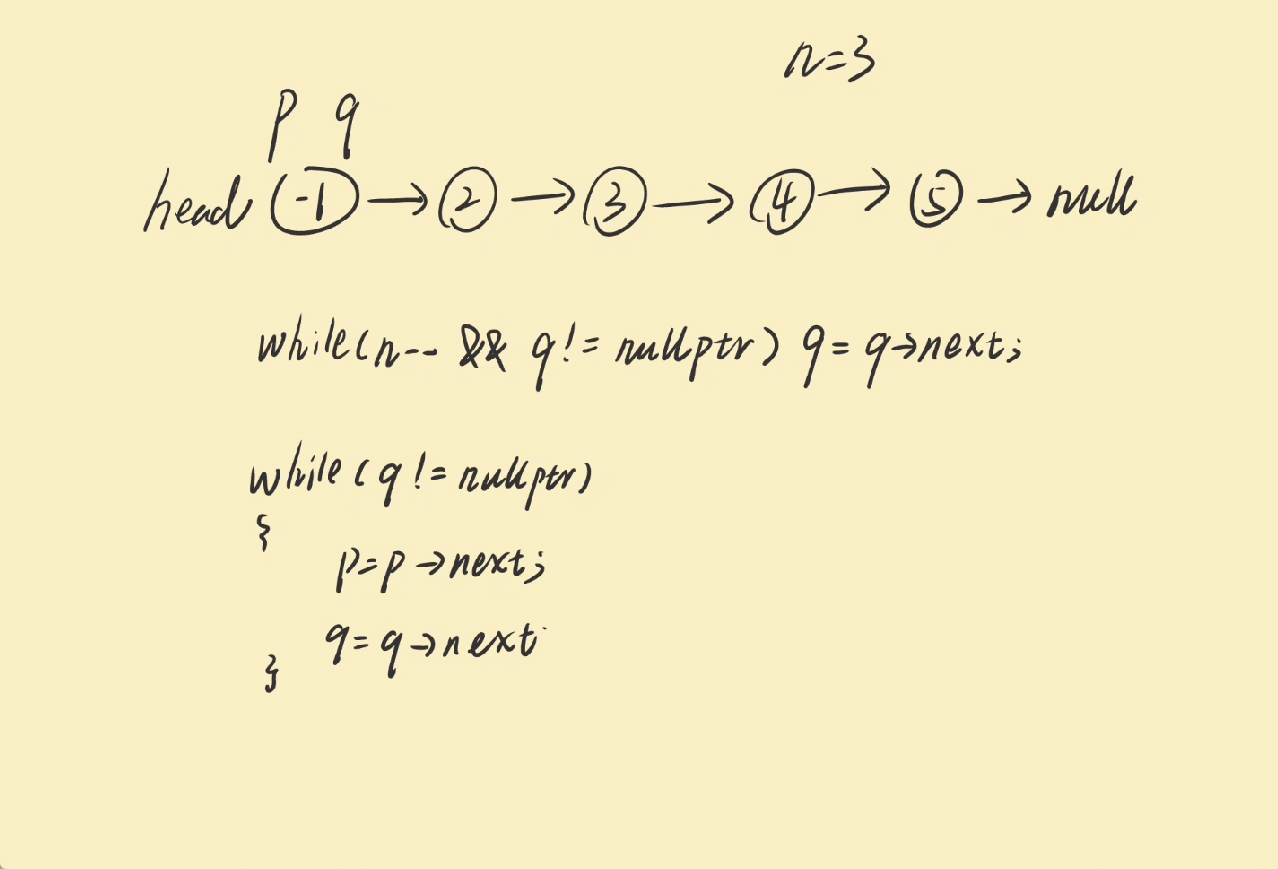 n=3
p q
head -1 → 2 → 3 → 4 → 5 → null
while(n-- && q != nullptr) q = q→next;
while(q != nullptr)
{
p=p→next;
q=q→next
}